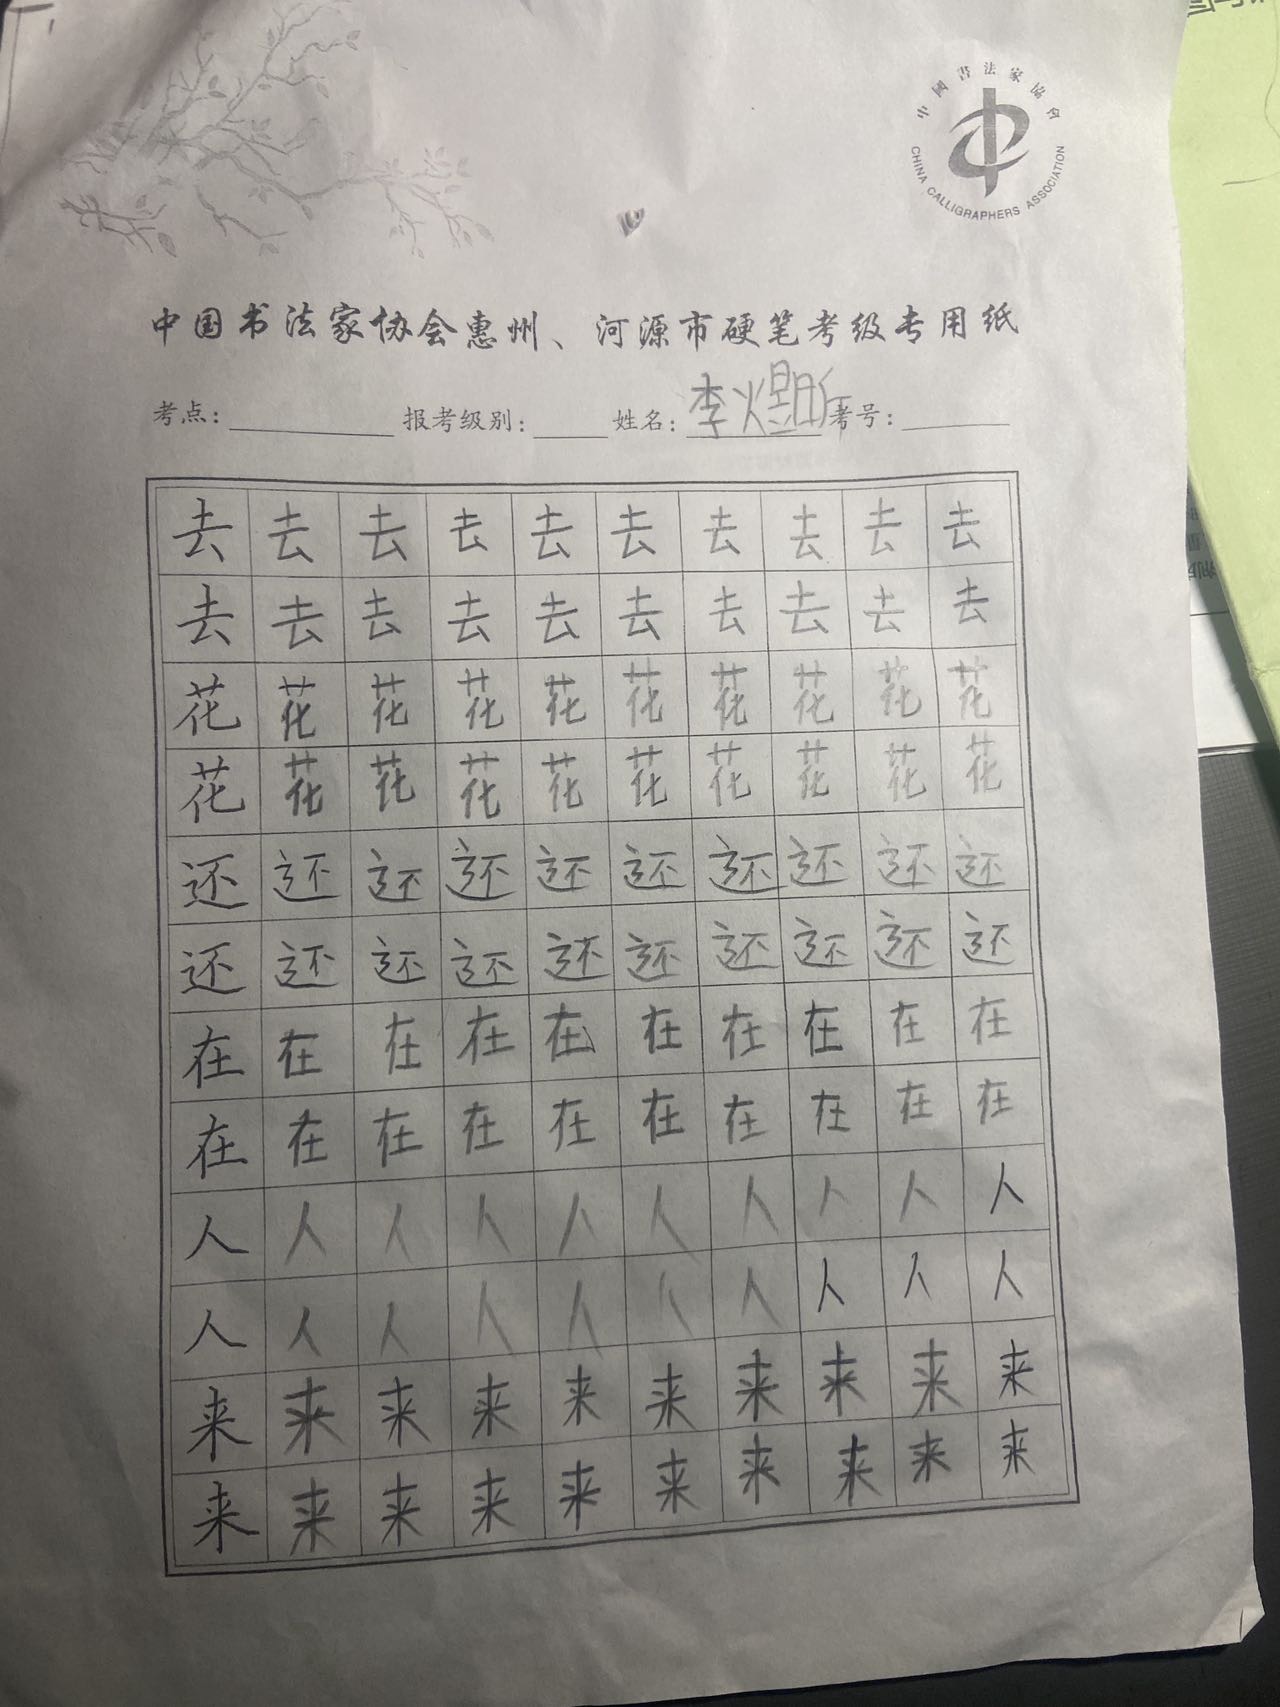 中國書法家協会
CHINA CALLIGRAPHERS ASSOCIATION
中国书法家协会惠州、河源市硬笔考级专用纸
考点： 报考级别： 姓名：李 考号：
去去去去去去去去去去
去去去去去去去去去去
花花花花花花花花花花
花花花花花花花花花花
还还还还还还还还还还
还还还还还还还还还还
在在在在在在在在在在
在在在在在在在在在在
人人人人人人人人人人
人人人人人人人人人人
来来来来来来来来来来
来来来来来来来来来来